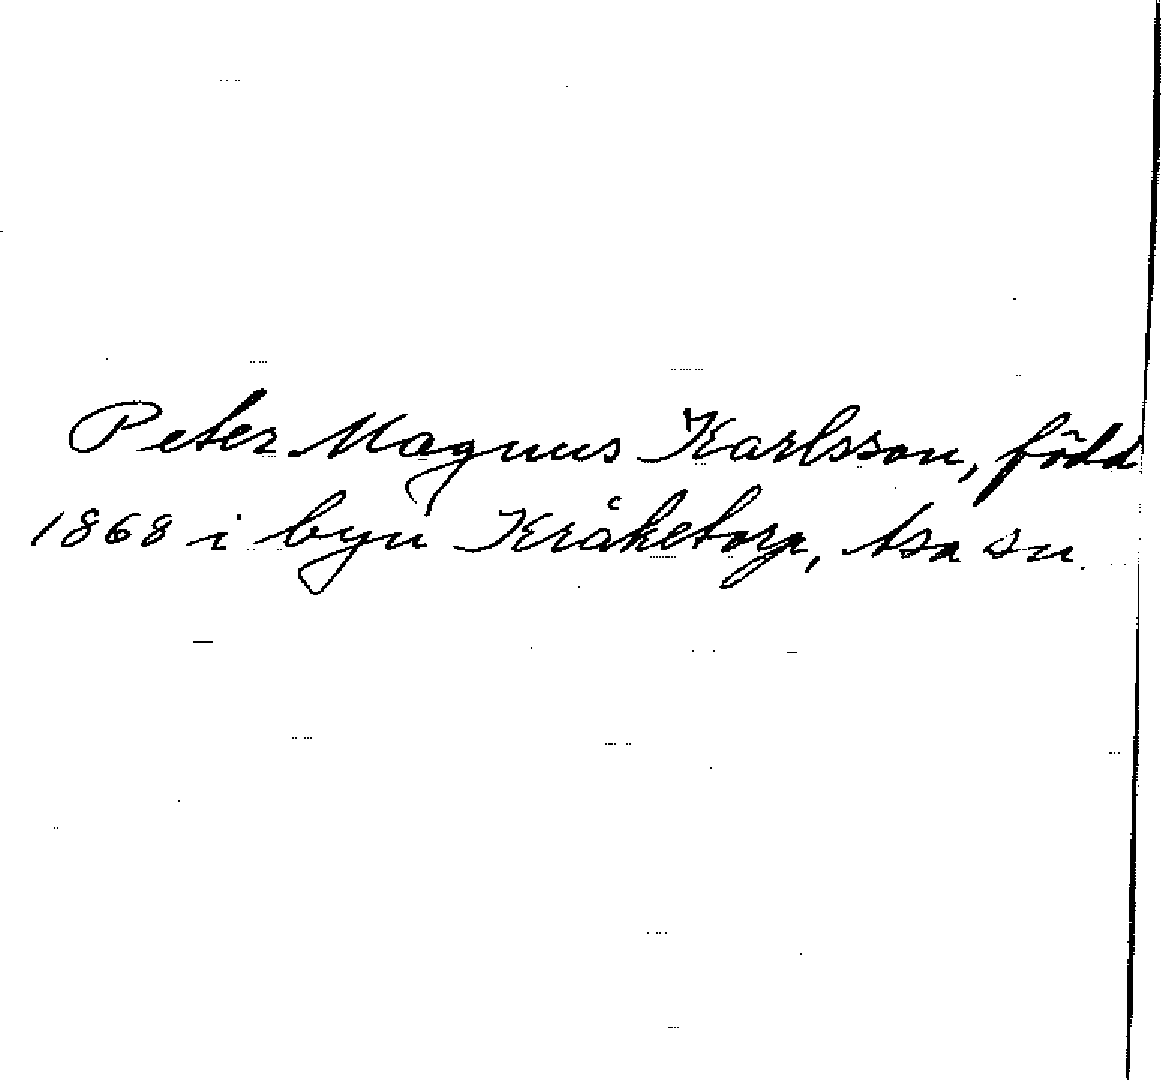 Peter Magnus Karlsson, född
1868 i byn Kråketorp, tsa sn.